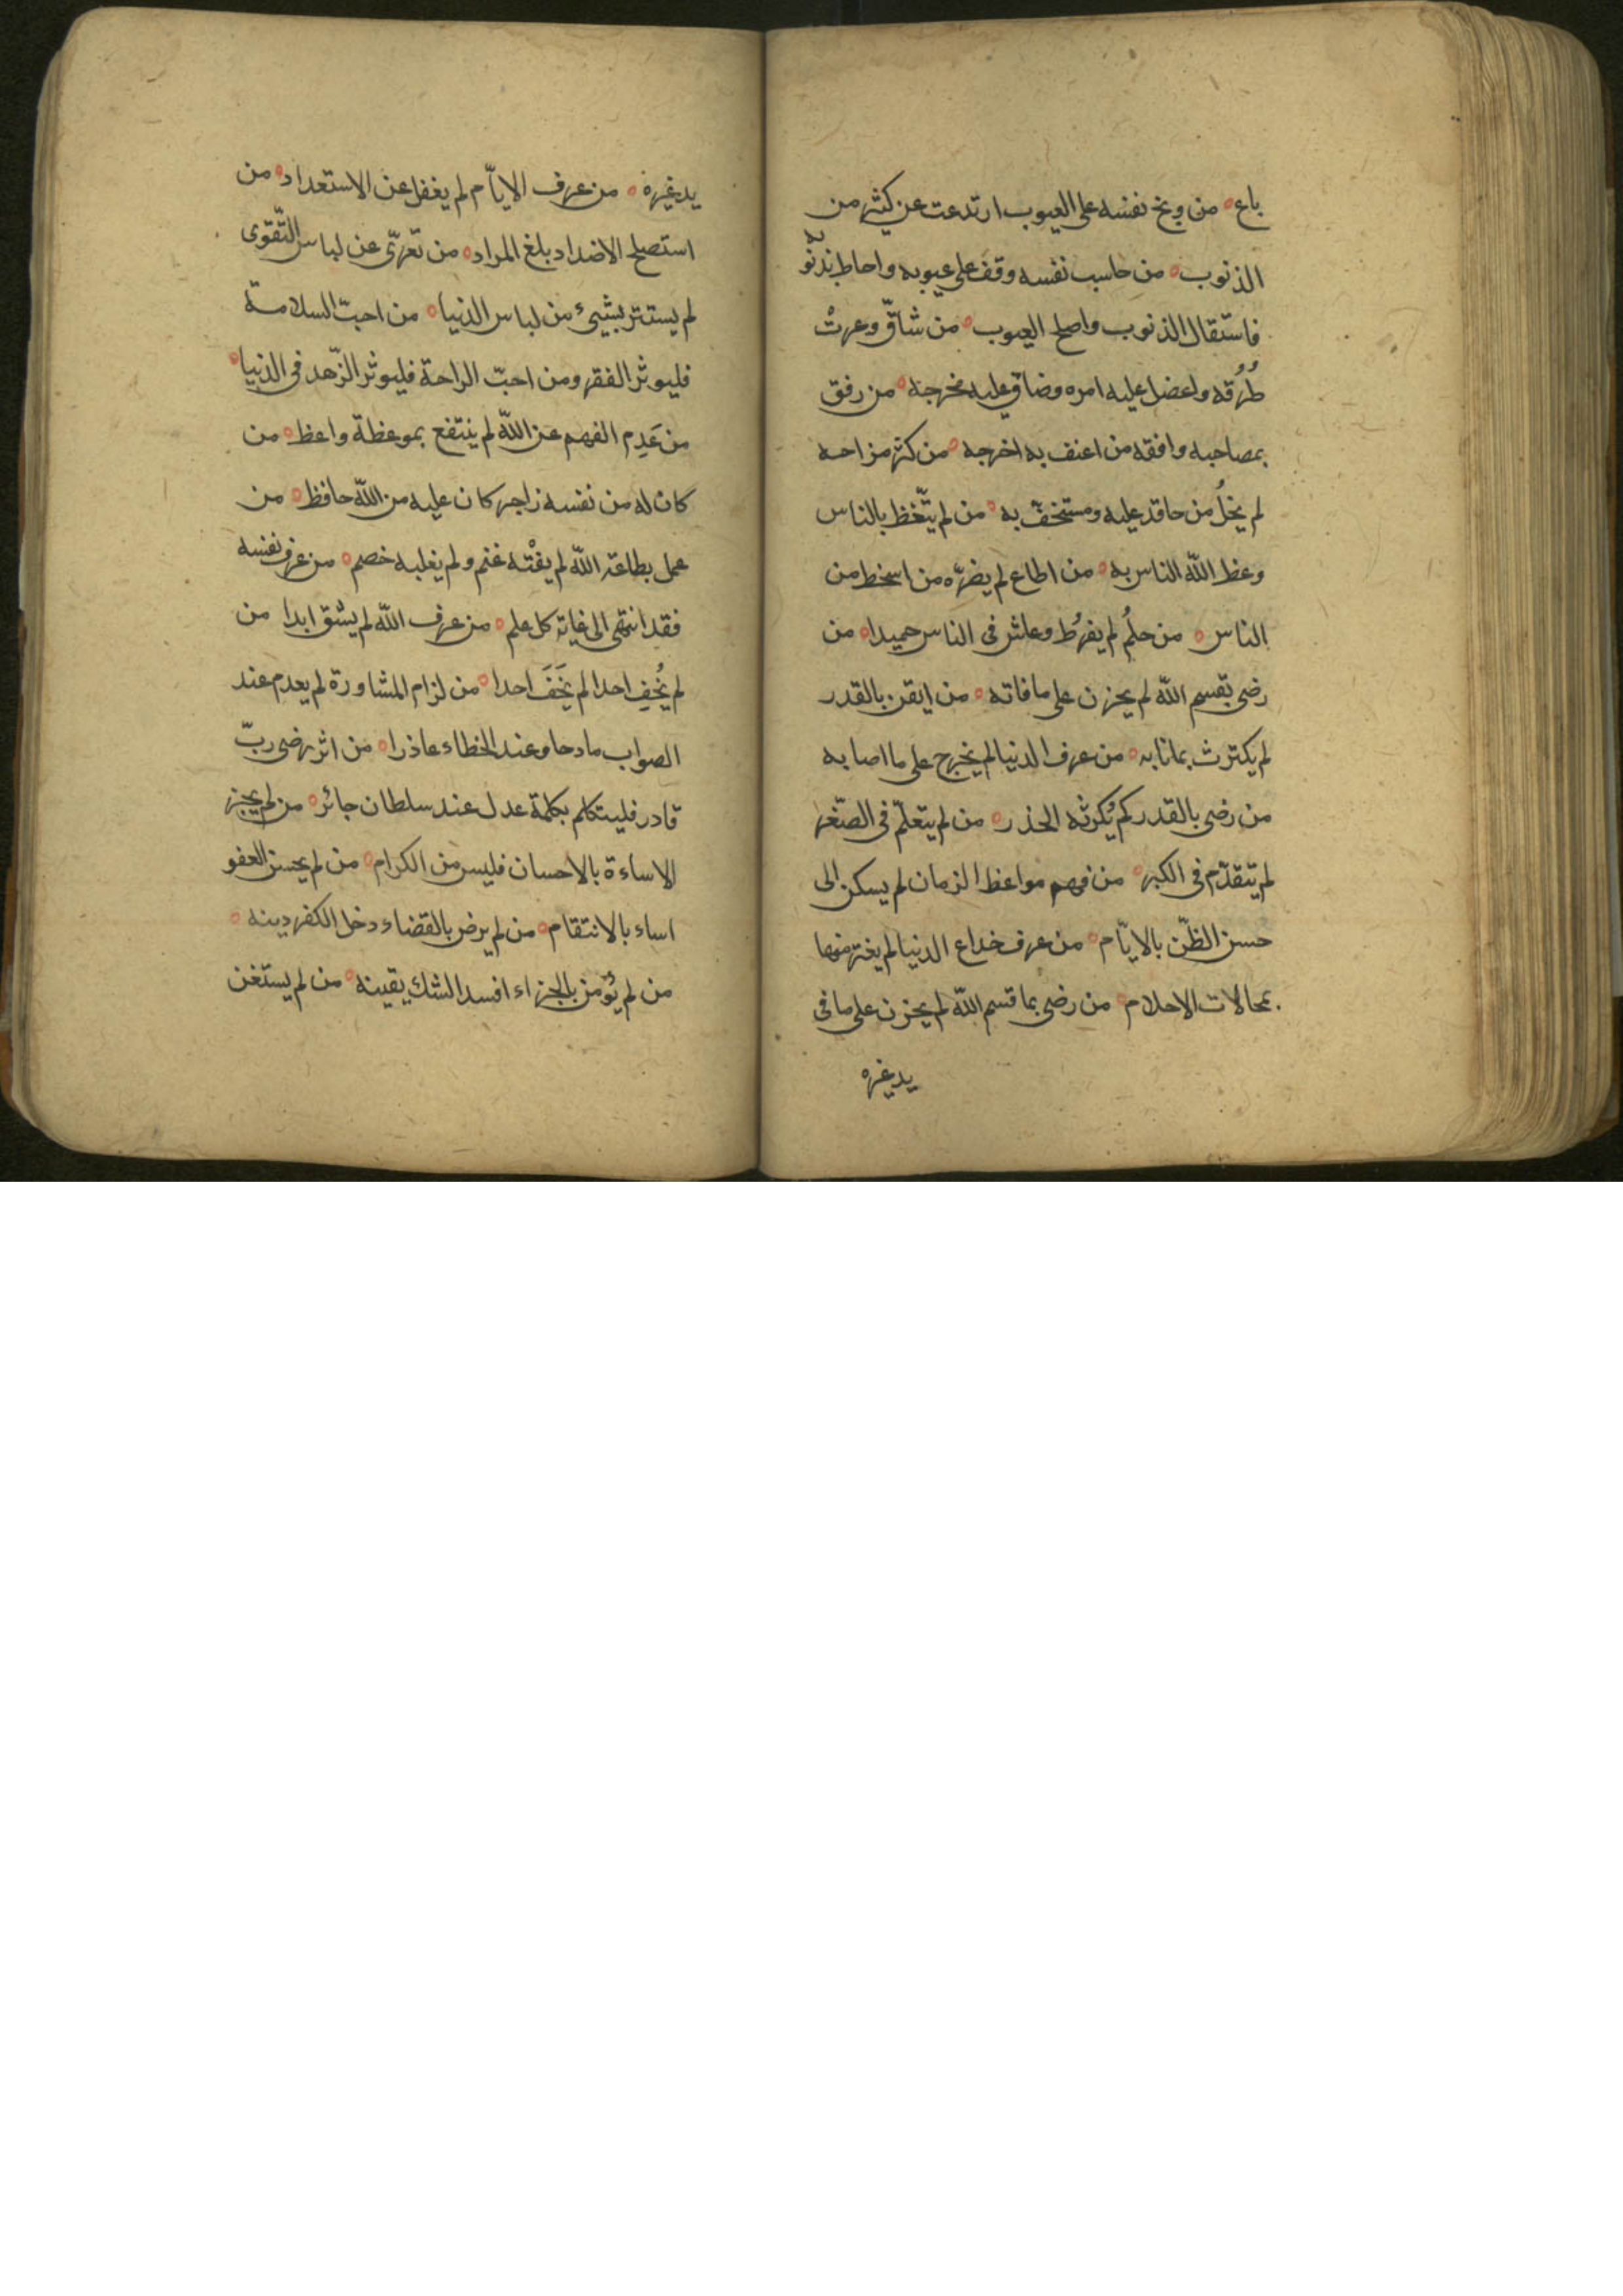 باع من وبخ نفسه على العيوب ارتدعت عن كثير من
الذنوب من حاسب نفسه وقف على عيوبه واحاط بذنوبه
فاستقال الذنوب واصلح العيوب من شاقّ وعرتْ
طُرُقه واعضل عليه امره وضاق عليه مخرجه من رفق
بمصاحبه وافقه من اعنف به اخرجه من كثر مزاحه
لم يخلُ من حاقد عليه ومستخفّ به من لم يتّعظ بالناس
وعظ اللّه الناس به من اطاع لم يضرّه من اسخط من
الناس من حلُم لم يفرُط وعاش في الناس حميدا من
رضى بقسم اللّه لم يحزن على مافاته من ايقن بالقدر
لم يكترث بمانابه من عرف الدنيا لم يحزن على مااصابه
من رضى بالقدر لم يُكرثه الحذر من لم يتعلّم في الصّغر
لم يتقدّم في الكبر من فهم مواعظ الزمان لم يسكن الى
حسن الظّن بالايّام من عرف خداع الدنيا لم يغتر منها
بمحالات الاحلام من رضى بما قسم اللّه لم يحزن على مافى
يد غيره
يد غيره من عرف الايّام لم يغفل عن الاستعداد من
استصلح الاضداد بلغ المراد من تعرّى عن لباس التّقوى
لم يستتر بشيئ من لباس الدنيا من احبّ السلامة
فليوثر الفقر ومن احبّ الراحة فليوثر الزّهد فى الدنيا
من عَدِم الفهم عن اللّه لم ينتفع بموعظة واعظ من
كان له من نفسه زاجر كان عليه من اللّه حافظ من
عمل بطاعة اللّه لم يفْته غنم ولم يغلبه خصم من عرف نفسه
فقد انتهى الى غاية كل علم من عرف اللّه لم يشق ابدا من
لم يُخِف احدا لم يَخَفَ احدا من لزام المشاورة لم يعدم عند
الصواب مادحا وعند الخطاء عاذرا من اثر رضى ربّ
قادر فليتكلم بكلمة عدل عند سلطان جائر من لم يجز
الاساءة بالاحسان فليس من الكرام من لم يحسن العفو
اساء بالانتقام من لم يرض بالقضاء دخل الكفر دينه
من لم يُؤمن بالجزاء افسد الشك يقينه من لم يستغن